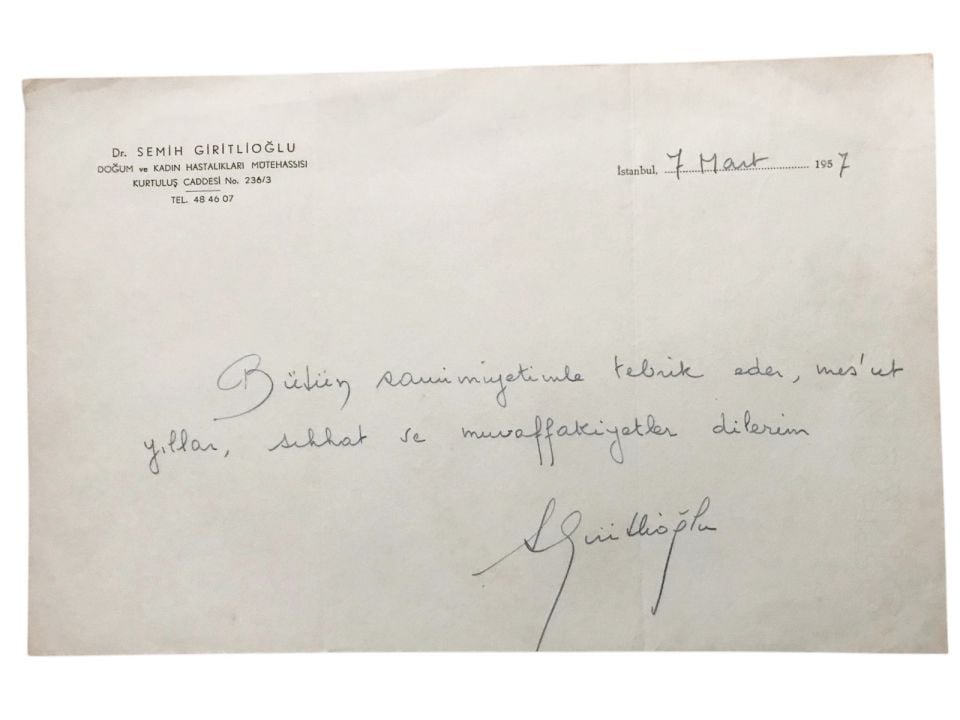 Dr. SEMİH GİRİTLİOĞLU
DOĞUM ve KADIN HASTALIKLARI MÜTEHASSISI
KURTULUŞ CADDESİ No. 236/3
TEL. 48 46 07
İstanbul, 7 Mart 1957
Bütün samimiyetimle tebrik eder, mes'ut
yıllar, sıhhat ve muvaffakiyetler dilerim
SGiritlioğlu